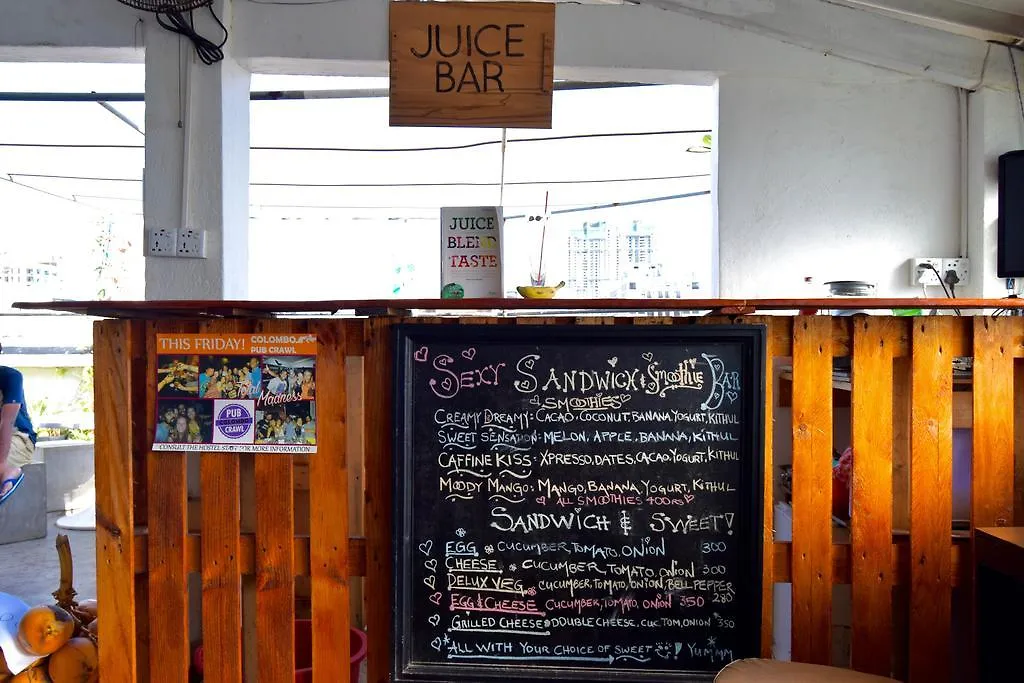 JUICE
BAR
JUICE
BLEND
TASTE
THIS FRIDAY! COLOMBO
PUB CRAWL
Total
Madness
PUB
CRAWL
CONSULT THE HOSTEL STAFF FOR MORE INFORMATION
SEXY SANDWICH & SMOOTHIE BAR
SMOOTHIES
CREAMY DREAMY: CACAO, COCONUT, BANANA YOGURT, KITHUL
SWEET SENSATION: MELON, APPLE, BANANA, KITHUL
CAFFINE KISS: XPRESSO, DATES, CACAO, YOGURT, KITHUL
MOODY MANGO: MANGO, BANANA, YOGURT, KITHUL
ALL SMOOTHIES 400RS
SANDWICH & SWEET!
EGG CUCUMBER, TOMATO, ONION 300
CHEESE CUCUMBER, TOMATO, ONION 300
DELUX VEG CUCUMBER, TOMATO, ONION, BELL PEPPER
280
EGG & CHEESE CUCUMBER, TOMATO, ONION 350
GRILLED CHEESE DOUBLE CHEESE, CUC, TOM, ONION 350
ALL WITH YOUR CHOICE OF SWEET ! YUMMM